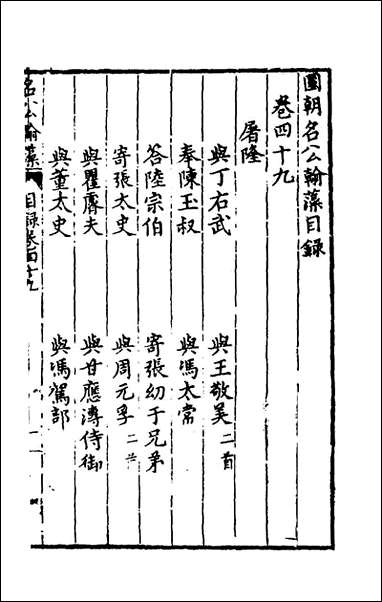 國朝名公翰藻目録
卷四十九
屠隆
與丁右武　與王敬美二首
奉陳玉叔　與馮太常
答陸宗伯　寄張幼于兄弟
寄張太史　與周元孚二首
與瞿睿夫　與甘應溥侍御
與董太史　與馮駕部
名公翰藻　目録卷四十九